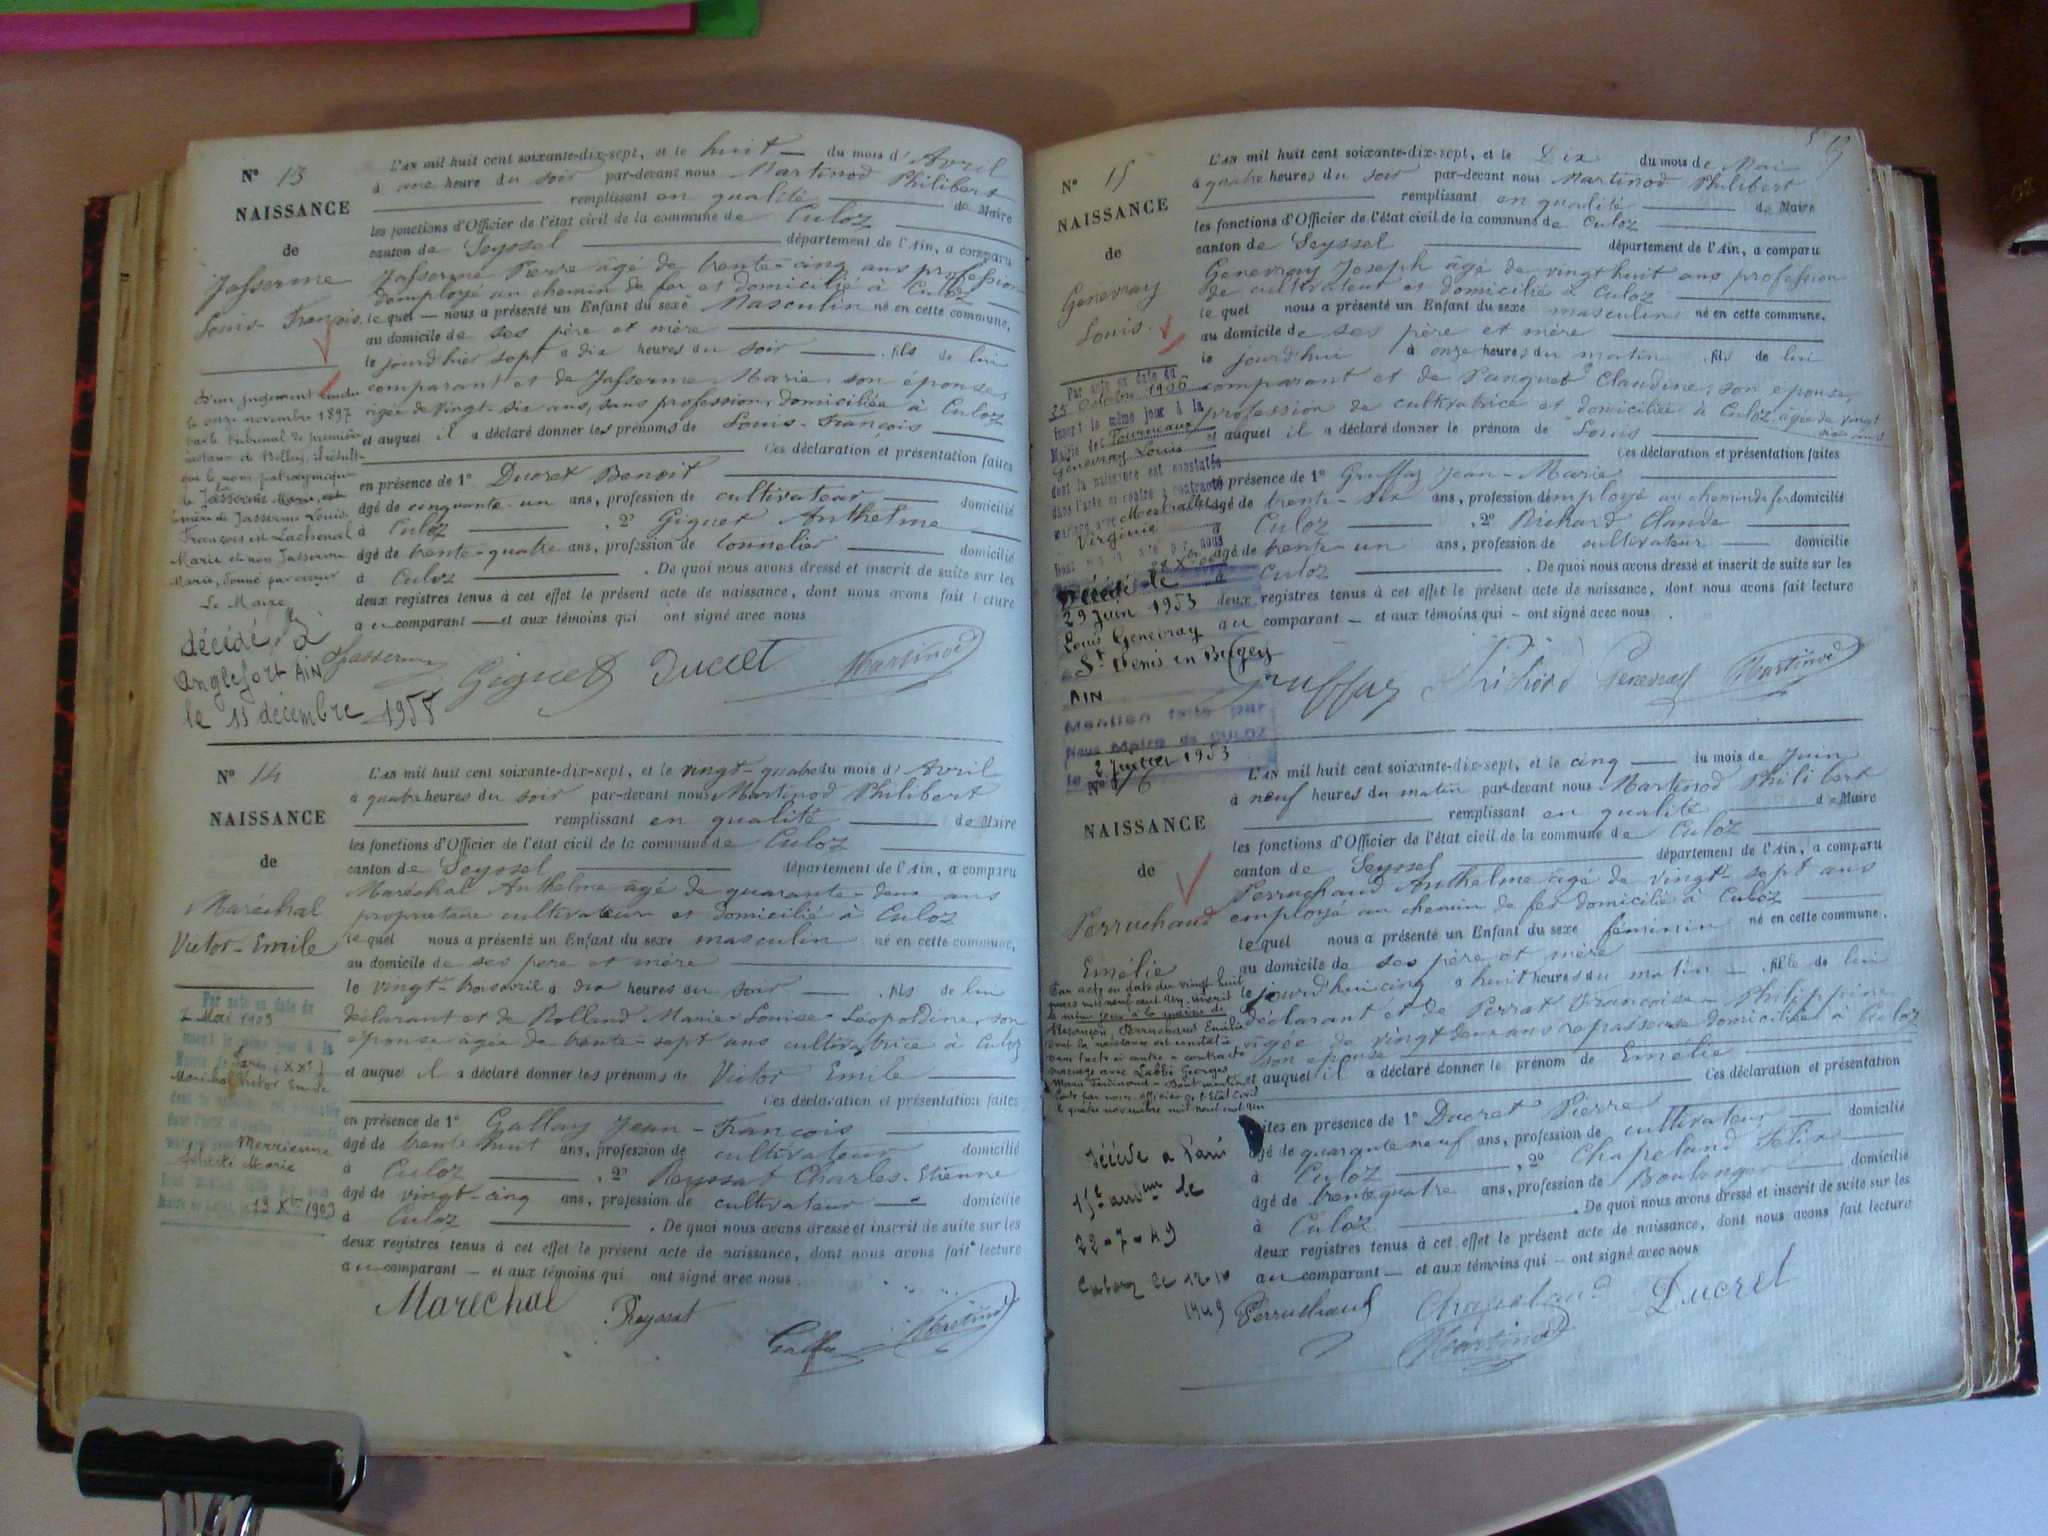 N° 13
NAISSANCE
de
Jasserme
Louis-François
L'AN mil huit cent soixante-dix-sept, et le huit du mois d'Avril
à une heure du soir par-devant nous Martinod Philibert
remplissant en qualité de Maire
les fonctions d'Officier de l'état civil de la commune de Culoz
canton de Seyssel département de l'Ain, a comparu
Jasserme Pierre âgé de trente-cinq ans profession
d'employé au chemin de fer et domicilié à Culoz
lequel nous a présenté un Enfant du sexe Masculin né en cette commune,
au domicile de ses père et mère
le jourd'hier sept à dix heures du soir fils de lui
comparant et de Jasserme Marie, son épouse,
âgée de vingt-six ans, sans profession, domiciliée à Culoz
et auquel il a déclaré donner les prénoms de Louis-François
Ces déclaration et présentation faites
en présence de 1° Ducret Benoit
âgé de cinquante-un ans, profession de cultivateur domicilié
à Culoz , 2° Giguet Anthelme
âgé de trente-quatre ans, profession de tonnelier domicilié
à Culoz . De quoi nous avons dressé et inscrit de suite sur les
deux registres tenus à cet effet le présent acte de naissance, dont nous avons fait lecture
au comparant et aux témoins qui ont signé avec nous
D'un jugement rendu
le onze novembre 1897
par le tribunal de première
instance de Belley, il résulte
que le nom patronymique
de Jasserme Marie, est
mère de Jasserme Louis
François est Lachenal
Marie et non Jasserme
Marie, donné par erreur
Le Maire
décédé à
Anglefort Ain
le 11 décembre 1958
Jasserme Giguet Ducret Martinod
N° 14
NAISSANCE
de
Maréchal
Victor-Emile
L'AN mil huit cent soixante-dix-sept, et le vingt-quatre du mois d'Avril
à quatre heures du soir par-devant nous Martinod Philibert
remplissant en qualité de Maire
les fonctions d'Officier de l'état civil de la commune de Culoz
canton de Seyssel département de l'Ain, a comparu
Maréchal Anthelme âgé de quarante-deux ans
propriétaire cultivateur et domicilié à Culoz
lequel nous a présenté un Enfant du sexe masculin né en cette commune,
au domicile de ses père et mère
le vingt-trois avril à dix heures du soir fils de lui
déclarant et de Rolland Marie-Louise-Léopoldine, son
épouse âgée de trente-sept ans cultivatrice à Culoz
et auquel il a déclaré donner les prénoms de Victor Emile
Ces déclaration et présentation faites
en présence de 1° Gallay Jean-François
âgé de trente huit ans, profession de cultivateur domicilié
à Culoz , 2° Reyssat Charles-Etienne
âgé de vingt-cinq ans, profession de cultivateur domicilié
à Culoz . De quoi nous avons dressé et inscrit de suite sur les
deux registres tenus à cet effet le présent acte de naissance, dont nous avons fait lecture
au comparant et aux témoins qui ont signé avec nous.
Par acte en date du
2 Mai 1903
inscrit le même jour à la
Mairie de Paris (XXe)
Maréchal Victor Emile
Merrienne
Marie
19 Xbre 1903
Maréchal Reyssat Gallay Martinod
N° 15
NAISSANCE
de
Genevray
Louis
L'AN mil huit cent soixante-dix-sept, et le Dix du mois de Mai
à quatre heures du soir par-devant nous Martinod Philibert
remplissant en qualité de Maire
les fonctions d'Officier de l'état civil de la commune de Culoz
canton de Seyssel département de l'Ain, a comparu
Genevray Joseph âgé de vingt huit ans profession
de cultivateur et domicilié à Culoz
lequel nous a présenté un Enfant du sexe masculin né en cette commune,
au domicile de ses père et mère
le jourd'hui à onze heures du matin fils de lui
comparant et de Panguet Claudine, son épouse,
profession de cultivatrice et domiciliée à Culoz, âgée de vingt
six ans
et auquel il a déclaré donner le prénom de Louis
Ces déclaration et présentation faites
en présence de 1° Gruffaz Jean-Marie
âgé de trente-six ans, profession d'employé au chemin de fer domicilié
à Culoz , 2° Richard Claude
âgé de trente-un ans, profession de cultivateur domicilié
à Culoz . De quoi nous avons dressé et inscrit de suite sur les
deux registres tenus à cet effet le présent acte de naissance, dont nous avons fait lecture
au comparant et aux témoins qui ont signé avec nous.
Par acte en date du
25 Octobre 1906
inscrit le même jour à la
Mairie de
Genevray Louis
dont la naissance est constatée
dans l'acte ci-contre a contracté
mariage avec
Virginie
Décédé le
29 Juin 1953
Louis Genevray
St Denis en Bugey
AIN
Mention faite par
Nous Maire de CULOZ
le 2 Juillet 1953
Gruffaz Richard Genevray Martinod
N° 16
NAISSANCE
de
Perruchaud
Emélie
L'AN mil huit cent soixante-dix-sept, et le cinq du mois de Juin
à neuf heures du matin par-devant nous Martinod Philibert
remplissant en qualité de Maire
les fonctions d'Officier de l'état civil de la commune de Culoz
canton de Seyssel département de l'Ain, a comparu
Perruchaud Anthelme âgé de vingt-sept ans
employé au chemin de fer domicilié à Culoz
lequel nous a présenté un Enfant du sexe féminin né en cette commune,
au domicile de ses père et mère
le jourd'hui cinq à huit heures du matin fille de lui
déclarant et de Perrat Françoise-Philippine
âgée de vingt deux ans repasseuse domiciliée à Culoz
son épouse
et auquel il a déclaré donner le prénom de Emélie
Ces déclaration et présentation
faites en présence de 1° Ducret Pierre
âgé de quarante neuf ans, profession de cultivateur domicilié
à Culoz , 2° Chapeland Félix
âgé de trente quatre ans, profession de Boulanger domicilié
à Culoz . De quoi nous avons dressé et inscrit de suite sur les
deux registres tenus à cet effet le présent acte de naissance, dont nous avons fait lecture
au comparant et aux témoins qui ont signé avec nous
Par acte en date du vingt huit
inscrit
le même jour à la mairie de
Perruchaud Emélie
dont la naissance est constatée
dans l'acte ci-contre a contracté
mariage avec Labbé Georges
Décédée à Paris
15e arrdt le
22-7-49
Culoz le 12-10
1949
Perruchaud Chapeland Ducret
Martinod